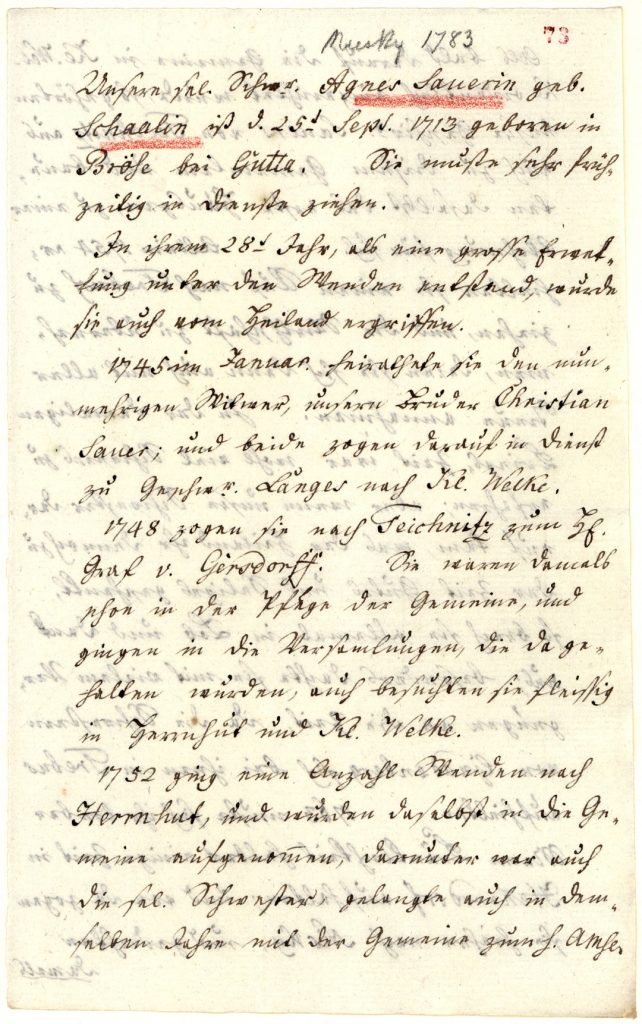 Niesky 1783
73
Unsere sel. Schwr. Agnes Sauerin geb.
Schaalin ist d. 25t Sept. 1713 geboren in
Bröse bei Gutta. Sie muste sehr früh-
zeitig in Dienste ziehen.
In ihrem 28t Jahr, als eine grosse Erwek-
kung unter den Wenden entstand, wurde
sie auch vom Heiland ergriffen.
1745 im Januar heirathete sie den nun-
mehrigen Witwer, unsern Bruder Christian
Sauer; und beide zogen darauf in Dienst
zu Geschwr. Langes nach Kl. Welke.
1748 zogen sie nach Teichnitz zum H.
Graf v. Gersdorff. Sie waren damals
schon in der Pflege der Gemeine, und
gingen in die Versamlungen, die da ge-
halten wurden, auch besuchten sie fleissig
in Herrnhut und Kl. Welke.
1752 ging eine Anzahl Wenden nach
Herrnhut, und wurden daselbst in die Ge-
meine aufgenommen, darunter war auch
die sel. Schwester, gelangte auch in dem-
selben Jahre mit der Gemeine zum h. Abhl.
Damals